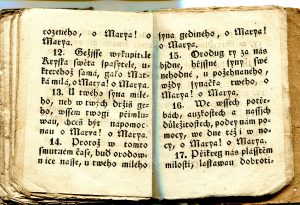 rozeného, o Marya! o
Marya.
12. Gežisse wykupitele
Krysta swěta spasytele,
kterehož samá, gako Mat-
ká milá, o Marya! o Marya.
13. U twého syna milé-
ho, neb w twých držiš ge-
ho, wssem twogi přimlu-
wau, chceš být nápomoc-
nau, o Marya! o Marya.
14. Protož w tomto
smutném čase, bud orodow-
nice nasse, u twého milého
syna gediného, o Marya!
o Marya.
15. Orodug ty za nás
bjdné, hřjssné syny swé
nehodné, u požehnaného,
wždy synáčka twého, o
Marya! o Marya.
16. We wssech potře-
bách, auzkostech a nassich
důležitostech, podey nám po-
mocy, we dne též i w no-
cy, o Marya! o Marya.
17. Přikreg nás plásstěm
milosti, laskawau dobroti-